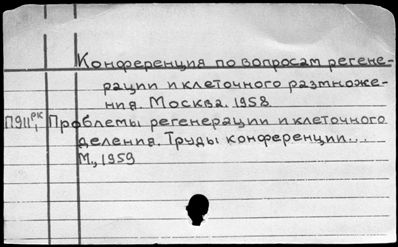 Конференция по вопросам регене-
рации и клеточного размноже-
ния. Москва. 1958
П911 РК 1 Проблемы регенерации и клеточного
деления. Труды конференции...
М., 1959